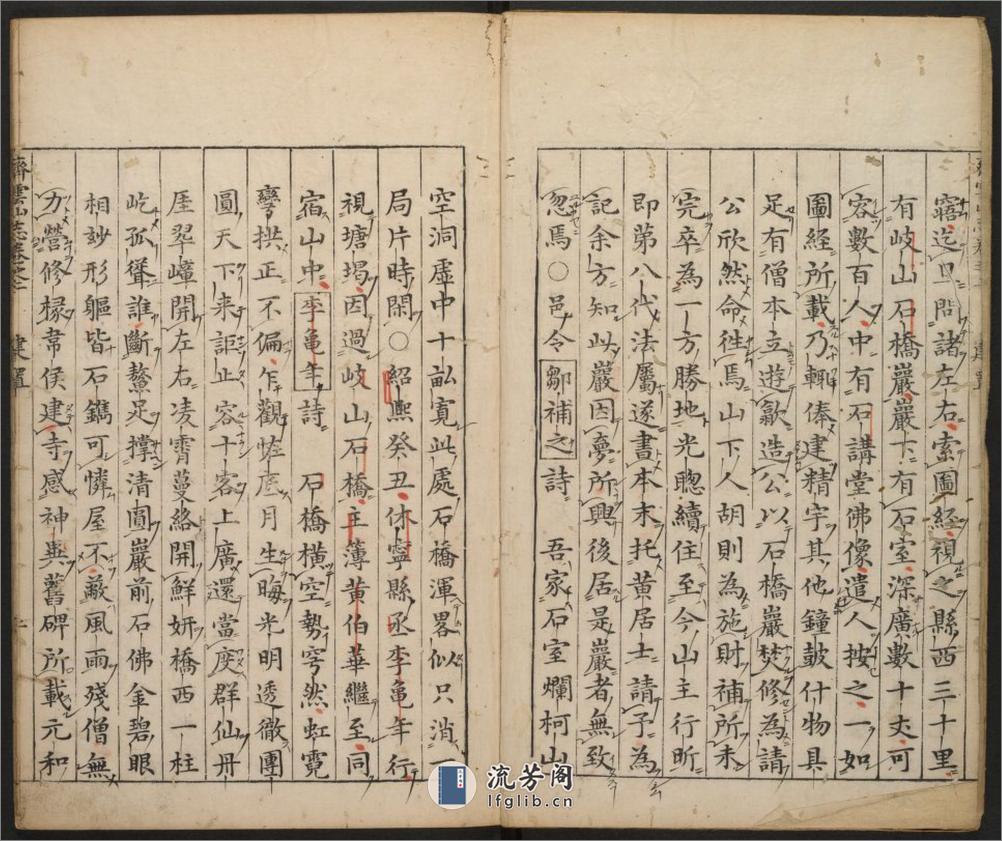 寤迄旦問諸左右索圖經視之縣西三十里
有岐山石橋巖巖下有石室深廣數十丈可
容數百人中有石講堂佛像遣人按之一如
圖經所載乃輒俸建精宇其他鐘皷什物具
足有僧本立遊歙造公以石橋巖焚修為請
公欣然命徃焉山下人胡則為施財補所未
完卒為一方勝地光聰續住至今山主行昕
即第八代法屬遂書本末托黃居士請予為
記余方知此巖因夣所興後居是巖者無致
忽焉○邑令鄒補之詩　吾家石室爛柯山
空洞虛中十畝寬此處石橋渾畧似只消一
局片時閑○紹熙癸丑休寧縣丞李亀年行
視塘堨因過岐山石橋主簿黃伯華繼至同
宿山中李亀年詩　石橋橫空勢穹然虹霓
彎拱正不偏乍觀恠底月生晦光明透徹團
圓天下来詎止容十客上廣還當度群仙丹
厓翠嶂開左右凌霄蔓絡開鮮妍橋西一柱
屹孤聳誰斷鼇足撐清圓巖前石佛金碧眼
相玅形軀皆石鐫可憐屋不蔽風雨殘僧無
力營修椽韋侯建寺感神興舊碑所載元和
齊雲山志卷之二　建置
流芳阁
lfglib.cn